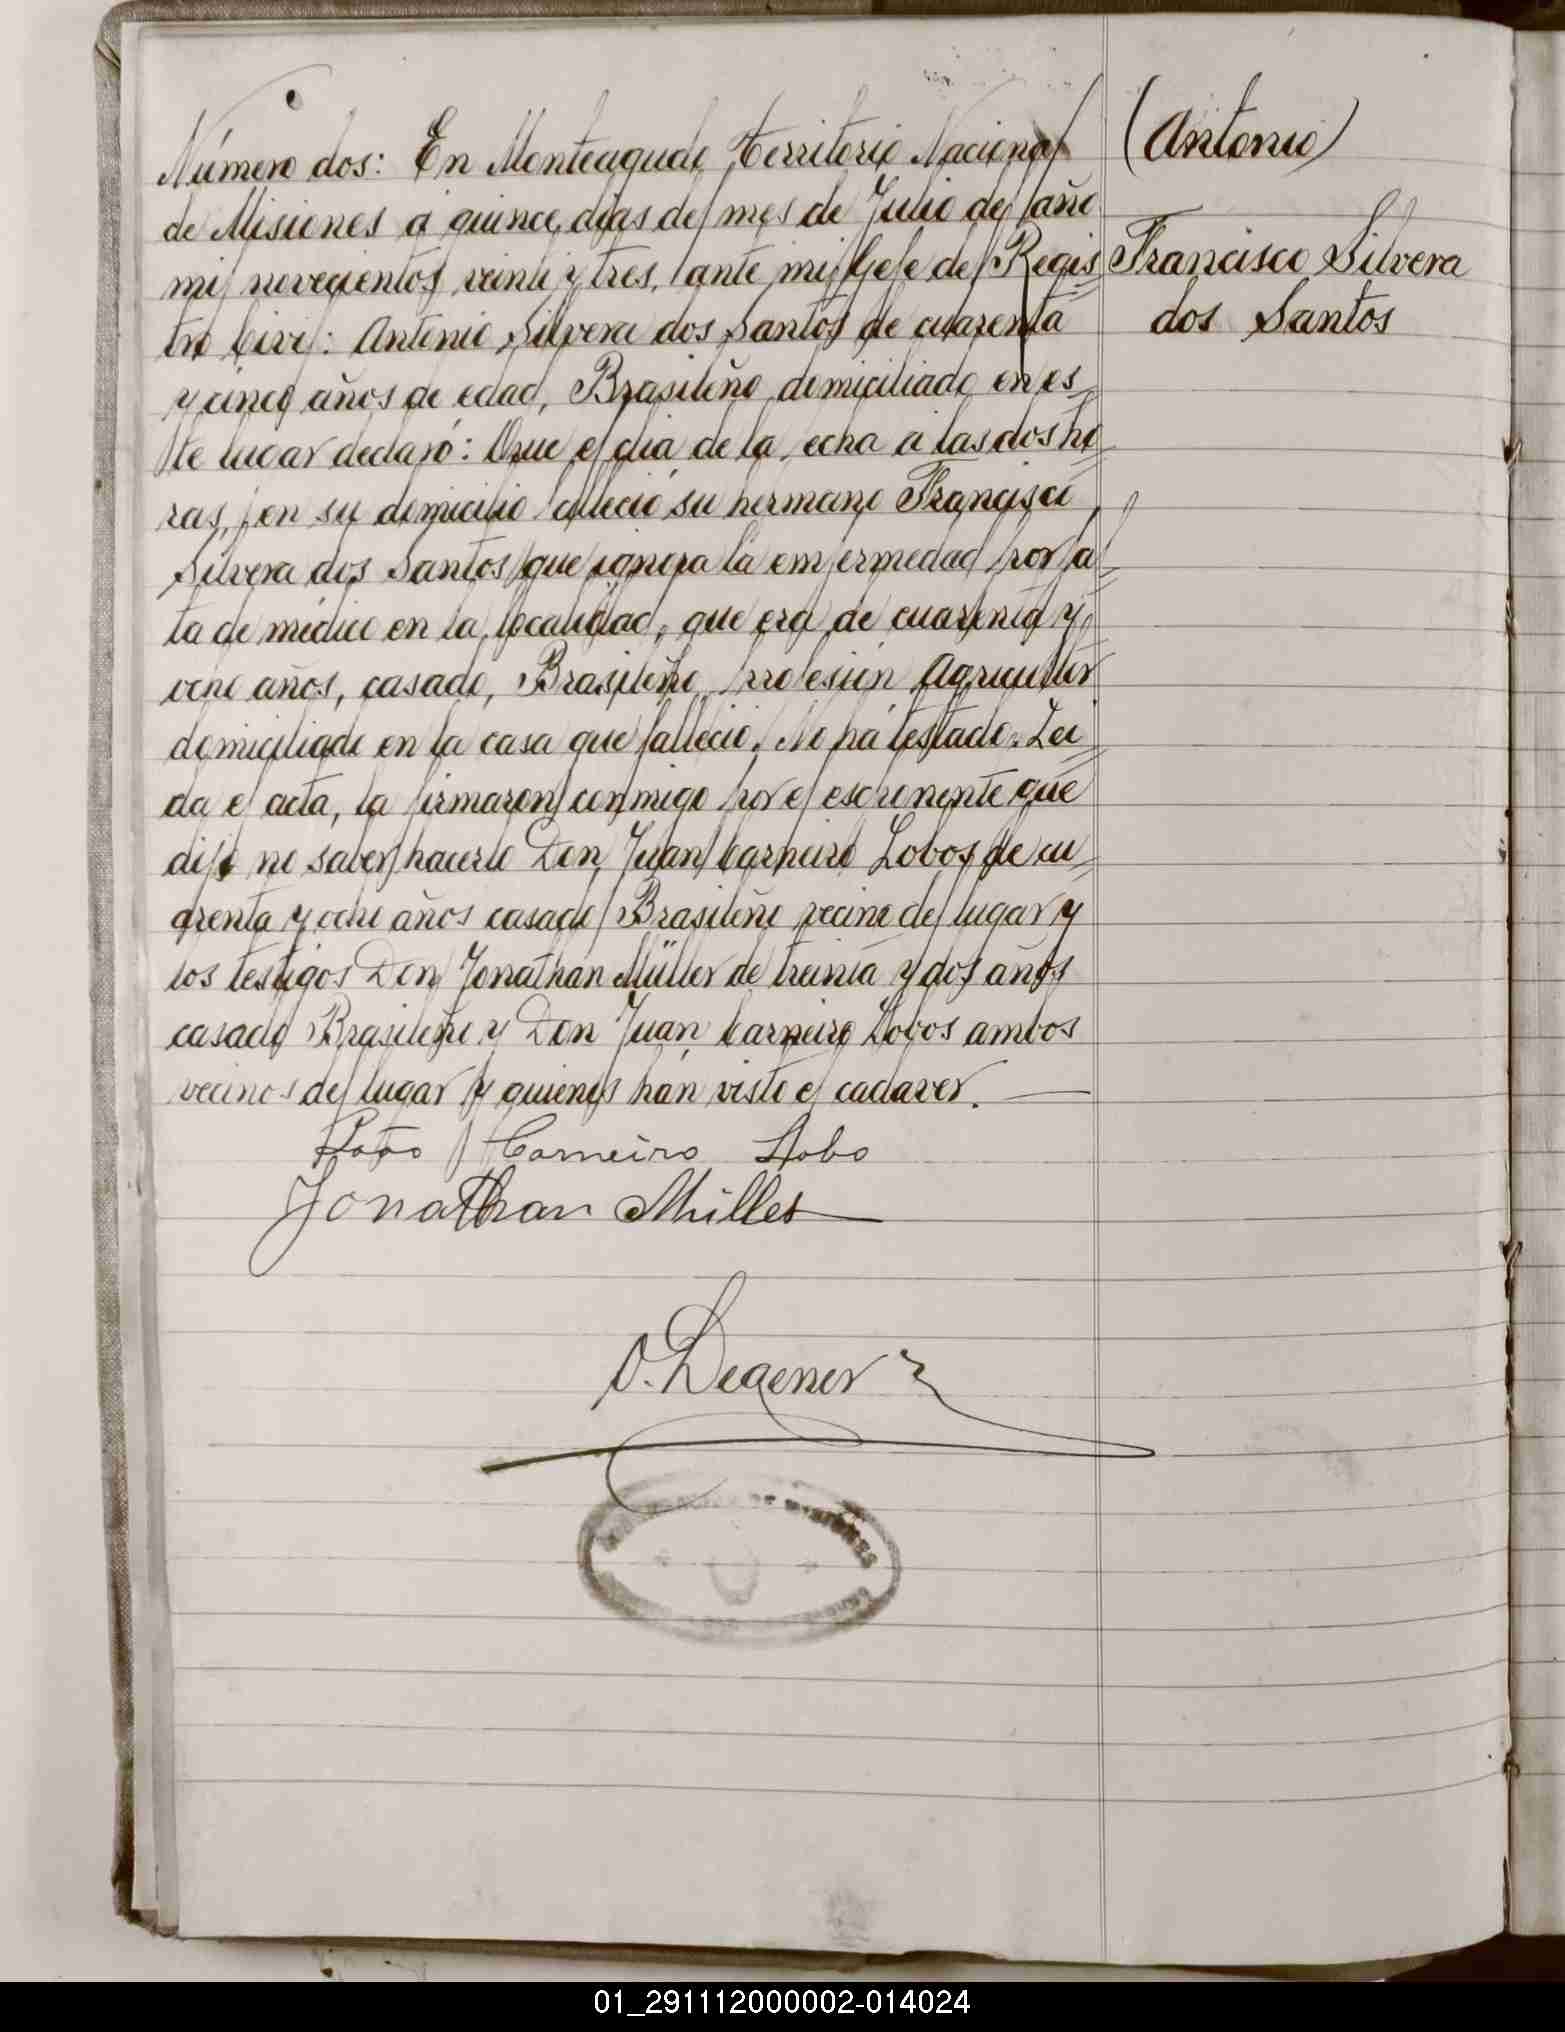 Número dos: En Monteagudo, Territorio Nacional
de Misiones á quince dias del mes de Julio del año
mil novecientos veinte y tres, ante mi Gefe del Regis=
tro Civil: Antonio Silvera dos Santos de cuarenta
y cinco años de edad, Brasileño domiciliado en es=
te lugar declaró: Que el dia de la fecha a las dos ho=
ras, en su domicilio falleció su hermano Francisco
Silvera dos Santos que ignora la enfermedad por fal=
ta de médico en la localidad, que era de cuarenta y
ocho años, casado, Brasileño, profesión Agricultor
domiciliado en la casa que falleció. No há testado. Lei=
da el acta, la firmaron conmigo por el esponente que
dijo no saber hacerlo Don Juan Carneiro Lobos de cu=
arenta y ocho años casado Brasileño vecino del lugar y
los testigos Don Jonathan Müller de treinta y dos años
casado Brasileño y Don Juan Carneiro Lobos ambos
vecinos del lugar y quienes hán visto el cadaver.
João Carneiro Lobo
Jonathan Müller
O. Degener
(Antonio)
Francisco Silvera
dos Santos
MISIONES
01_291112000002-014024